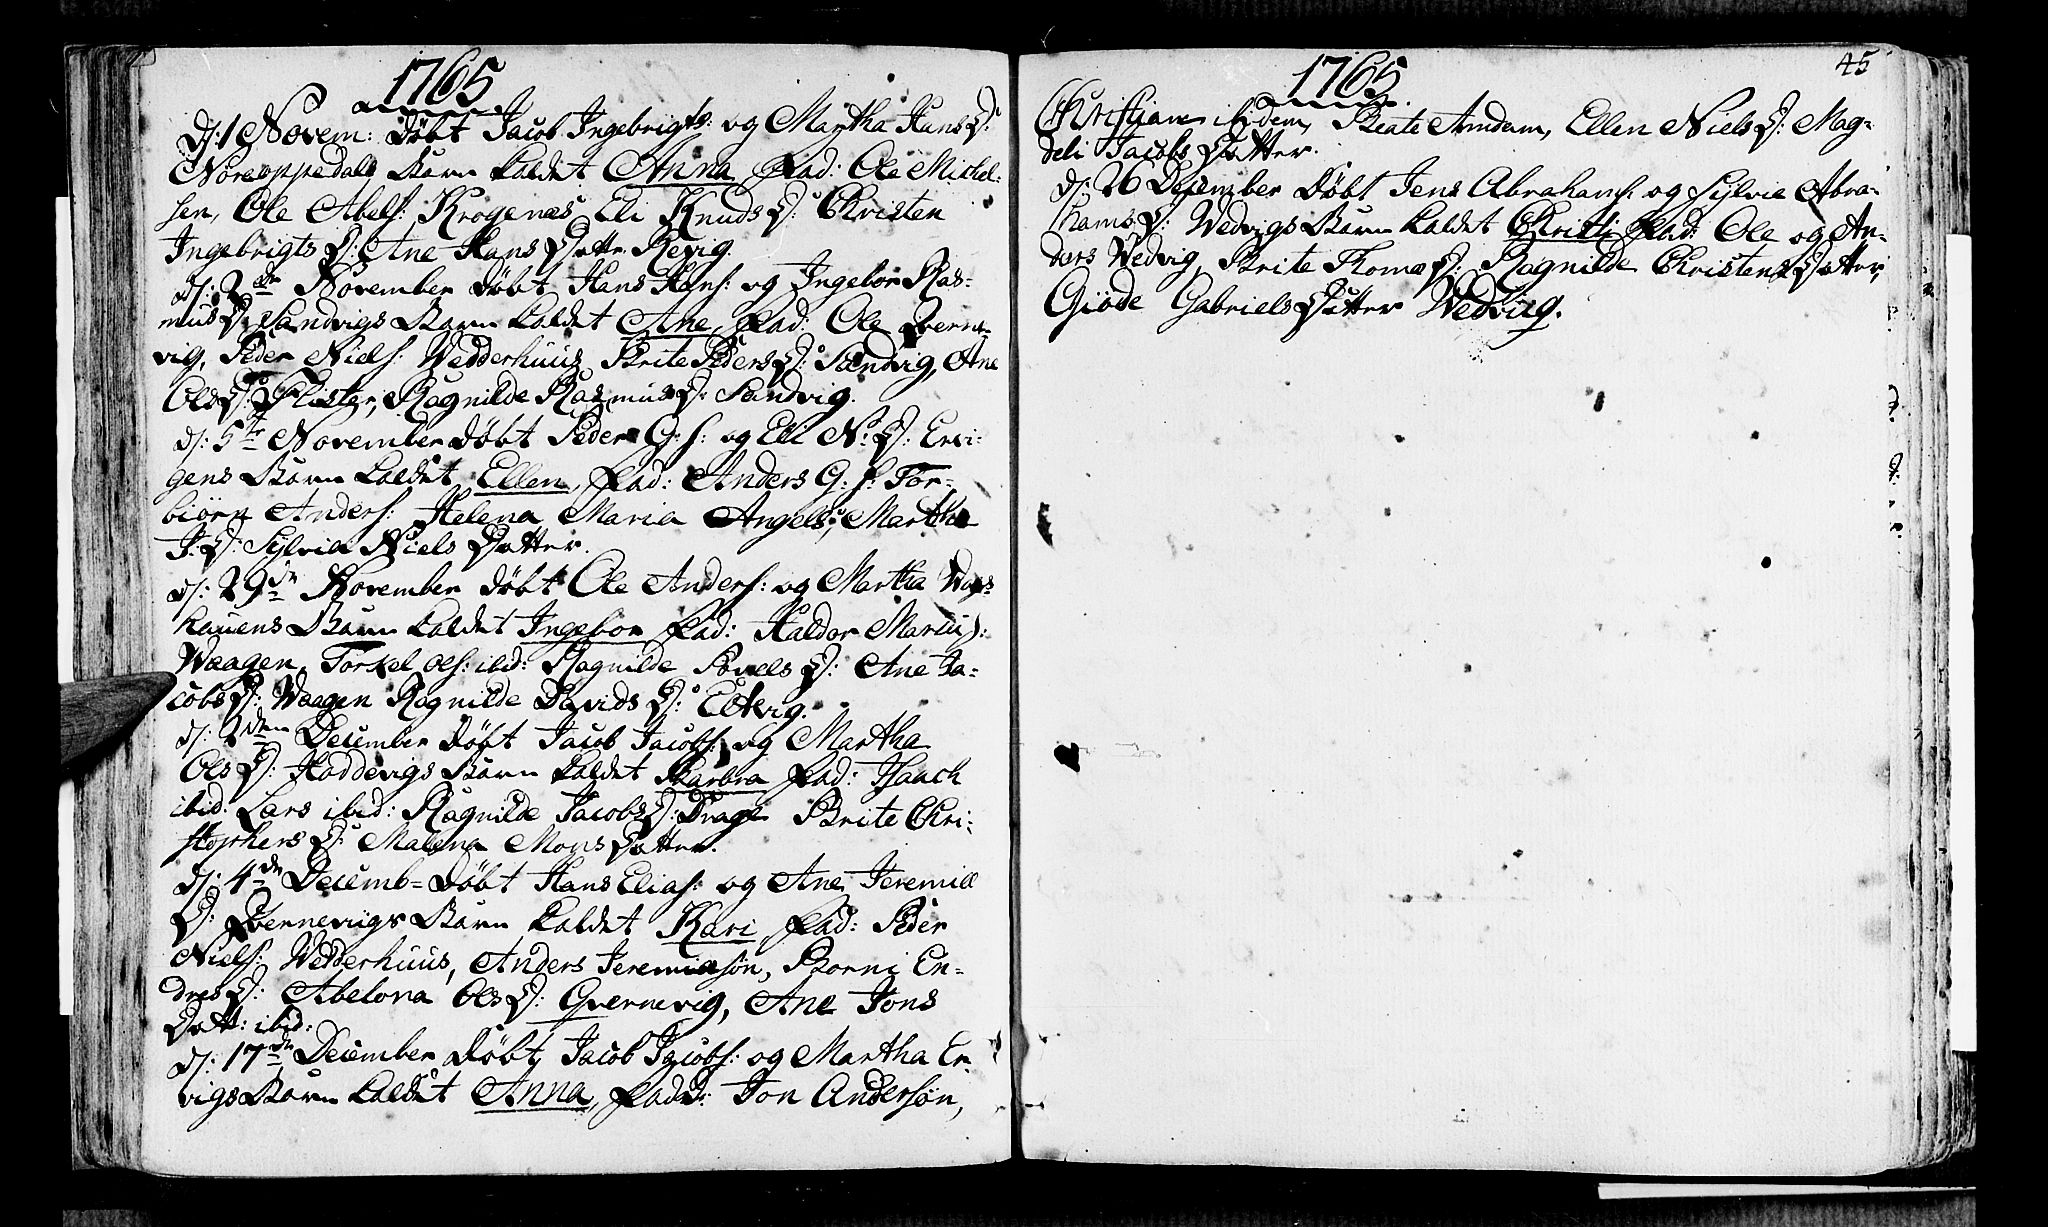 1765
d: 1 Novem: Døbt Jacob Ingebrigts: og Martha Hans D:
Noreoppedals Barn kaldet Anna, Fad: Ole Michel-
sen, Ole Abels: Krogenæs Eli Knuds D: Christen
Ingebrigts D: Ane Hans Datter Revig.
d: 2den November Døbt Hans Hans: og Ingebor Ras-
mus D: Sandvigs Barn kaldet Ane, Fad: Ole Qverne-
vig, Peder Niels: Wedderhuus, Brite Peders D: Sandvig, Ane
Ols D: Flister, Ragnilde Rasmus D: Sandvig.
d: 5te November Døbt Peder G: s: og Eli N: D: Ervi-
gens Barn kaldet Ellen, Fad: Anders G: s: Tor-
biørn Anders: Helena Maria Angels, Martha
J: D: Sylvia Niels Datter.
d: 29de November Døbt Ole Anders: og Martha
Barn kaldet Ingebor Fad: Haldor
Waagen, Torkel Ols: ibid: Ragnilde Povels D: Ane Ja-
cobs D: Waagen Ragnilde Davids D: Eltvig.
d: 2den December Døbt Jacob Jacobs: og Martha
Ols D: Hoddevigs Barn kaldet Barbra Fad: Isaach
ibid: Lars ibid: Ragnilde Jacobs D: Drage Brite Chri-
stophers D: Malena Mons Datter.
d: 4de Decemb= Døbt Hans Elias: og Ane Jeremiæ
D: Qvernevigs Barn kaldet Kari, Fad: Peder
Niels: Wedderhuus, Anders Jeremiasøn, Borni En-
dres D: Abelona Ols D: Qvernevig, Ane Jons
Datt: ibid:
d: 17de December Døbt Jacob Jacobs: og Martha Er-
vigs Barn kaldet Anna, Fad: Jon Andersøn,
1765
45
Christian ibidem, Beate Amdam, Ellen Niels D: Mag-
deli Jacobs Datter.
d: 26 December Døbt Jens Abrahams: og Sylvie Abra-
hams D: Wedvigs Barn kaldet Christi Fad: Ole og An-
ders Wedvig, Brite Thomæ D: Ragnilde Christens Datter,
Giøde Gabriels Datter Wedvig.